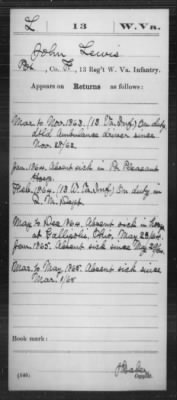 L | 13 | W. Va.
John Lewis
Pvt., Co. F, 13 Reg't W. Va. Infantry.
Appears on Returns as follows:
Mar. to Nov. 1863. (13 Va. Inf.) On duty
dtld ambulance driver since
Nov. 28/62
Jan. 1864. Absent sick in Pt. Pleasant
Hosp.
Feb. 1864. (13 W. Va. Inf.) On duty in
Q. M. Dept.
May to Dec. 1864. Absent sick in Hosp.
at Gallipolis, Ohio, May 28/64.
Jan. 1865. Absent sick since May 28/64.
Mar. to May, 1865. Absent sick since
Mar. 1/65
Book mark:
(546)
Copyist.